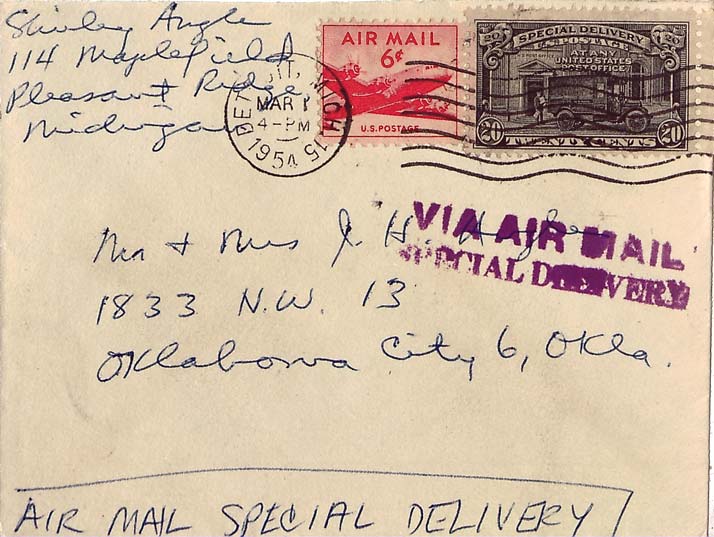 Shirley Angle
114 Maplefield
Pleasant Ridge,
Michigan
DETROIT, MICH. 15
MAR 1
4-PM
1954
AIR MAIL
6¢
U.S. POSTAGE
20 SPECIAL DELIVERY 20
U.S. POSTAGE
AT ANY
UNITED STATES
POST OFFICE
20 TWENTY CENTS 20
VIA AIR MAIL
SPECIAL DELIVERY
Mr + Mrs J. H.
1833 N.W. 13
Oklahoma City 6, Okla.
AIR MAIL SPECIAL DELIVERY